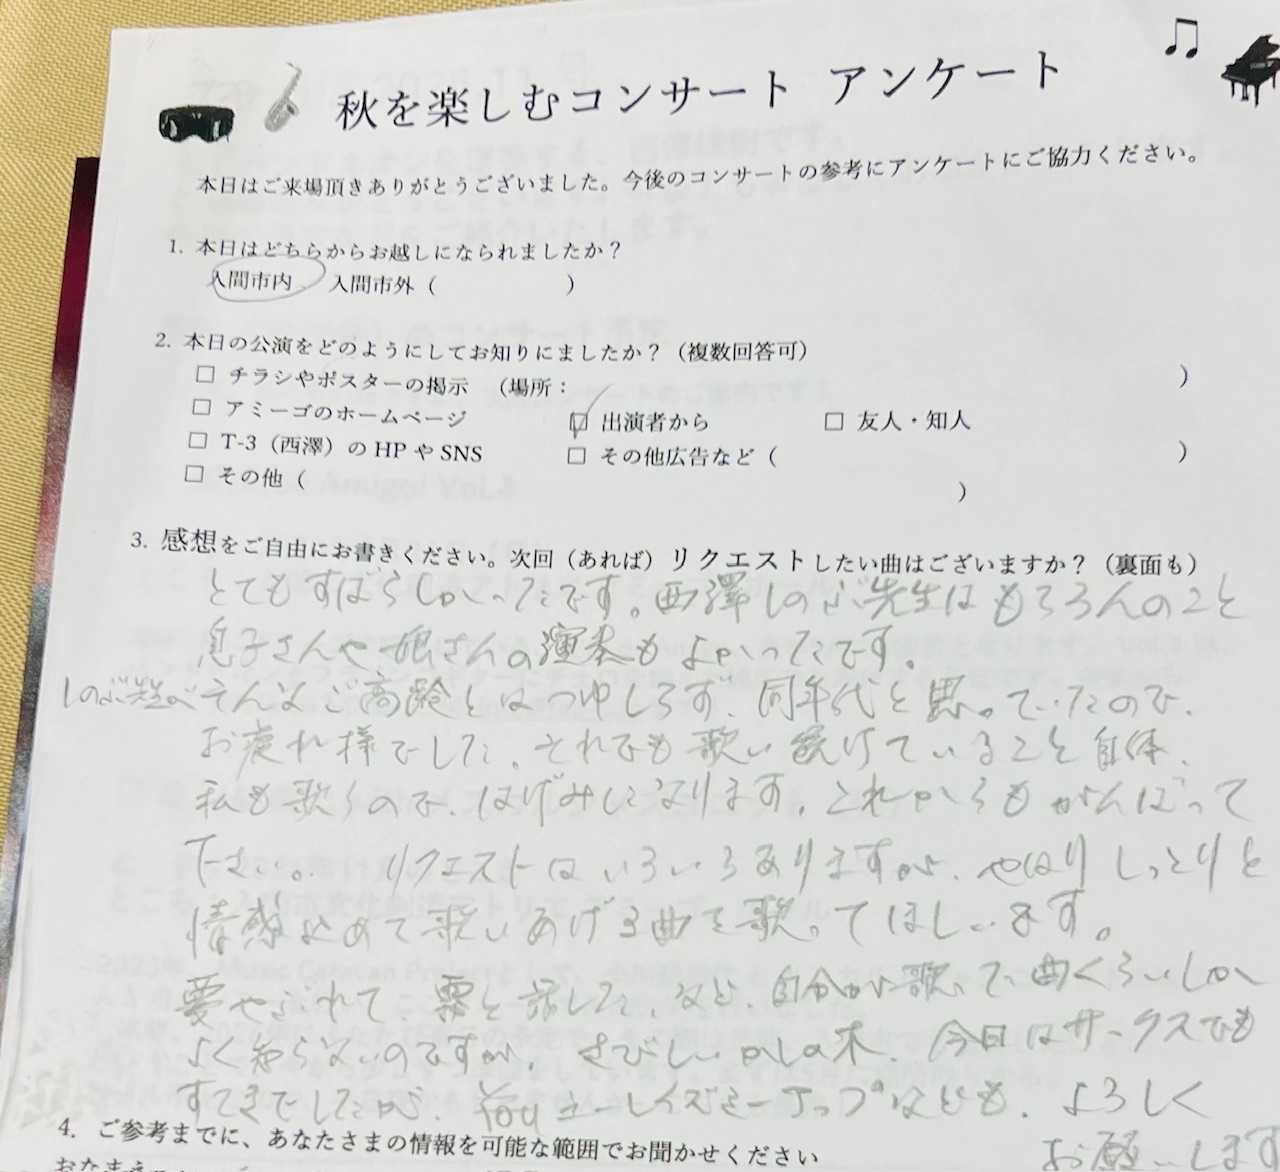 秋を楽しむコンサート アンケート
本日はご来場頂きありがとうございました。今後のコンサートの参考にアンケートにご協力ください。
1. 本日はどちらからお越しになられましたか？
入間市内 入間市外（ ）
2. 本日の公演をどのようにしてお知りにましたか？（複数回答可）
□ チラシやポスターの掲示 （場所： ）
□ アミーゴのホームページ ☑ 出演者から □ 友人・知人
□ T-3（西澤）の HP や SNS □ その他広告など（ ）
□ その他（ ）
3. 感想をご自由にお書きください。次回（あれば）リクエストしたい曲はございますか？（裏面も）
とてもすばらしかったです。西澤しのぶ先生はもちろんのこと
息子さんや、娘さんの演奏もよかったです。
しのぶ先生がそんなご高齢とはつゆしらず、同年代と思っていたので、
お疲れ様でした。それでも歌い続けていること自体、
私も歌うので、はげみになります。これからもがんばって
下さい。リクエストはいろいろありますが、やはりしっとりと
情感込めて歌いあげる曲を歌ってほしいます。
夢やぶれて、霧と話した、など、自分が歌って曲くらいしか
よく知らないのですが、さびしいかしの木、今日はサークスでも
すてきでしたが、You ユーレイズミーアップなども、よろしく
お願いします
4. ご参考までに、あなたさまの情報を可能な範囲でお聞かせください
おなまえ